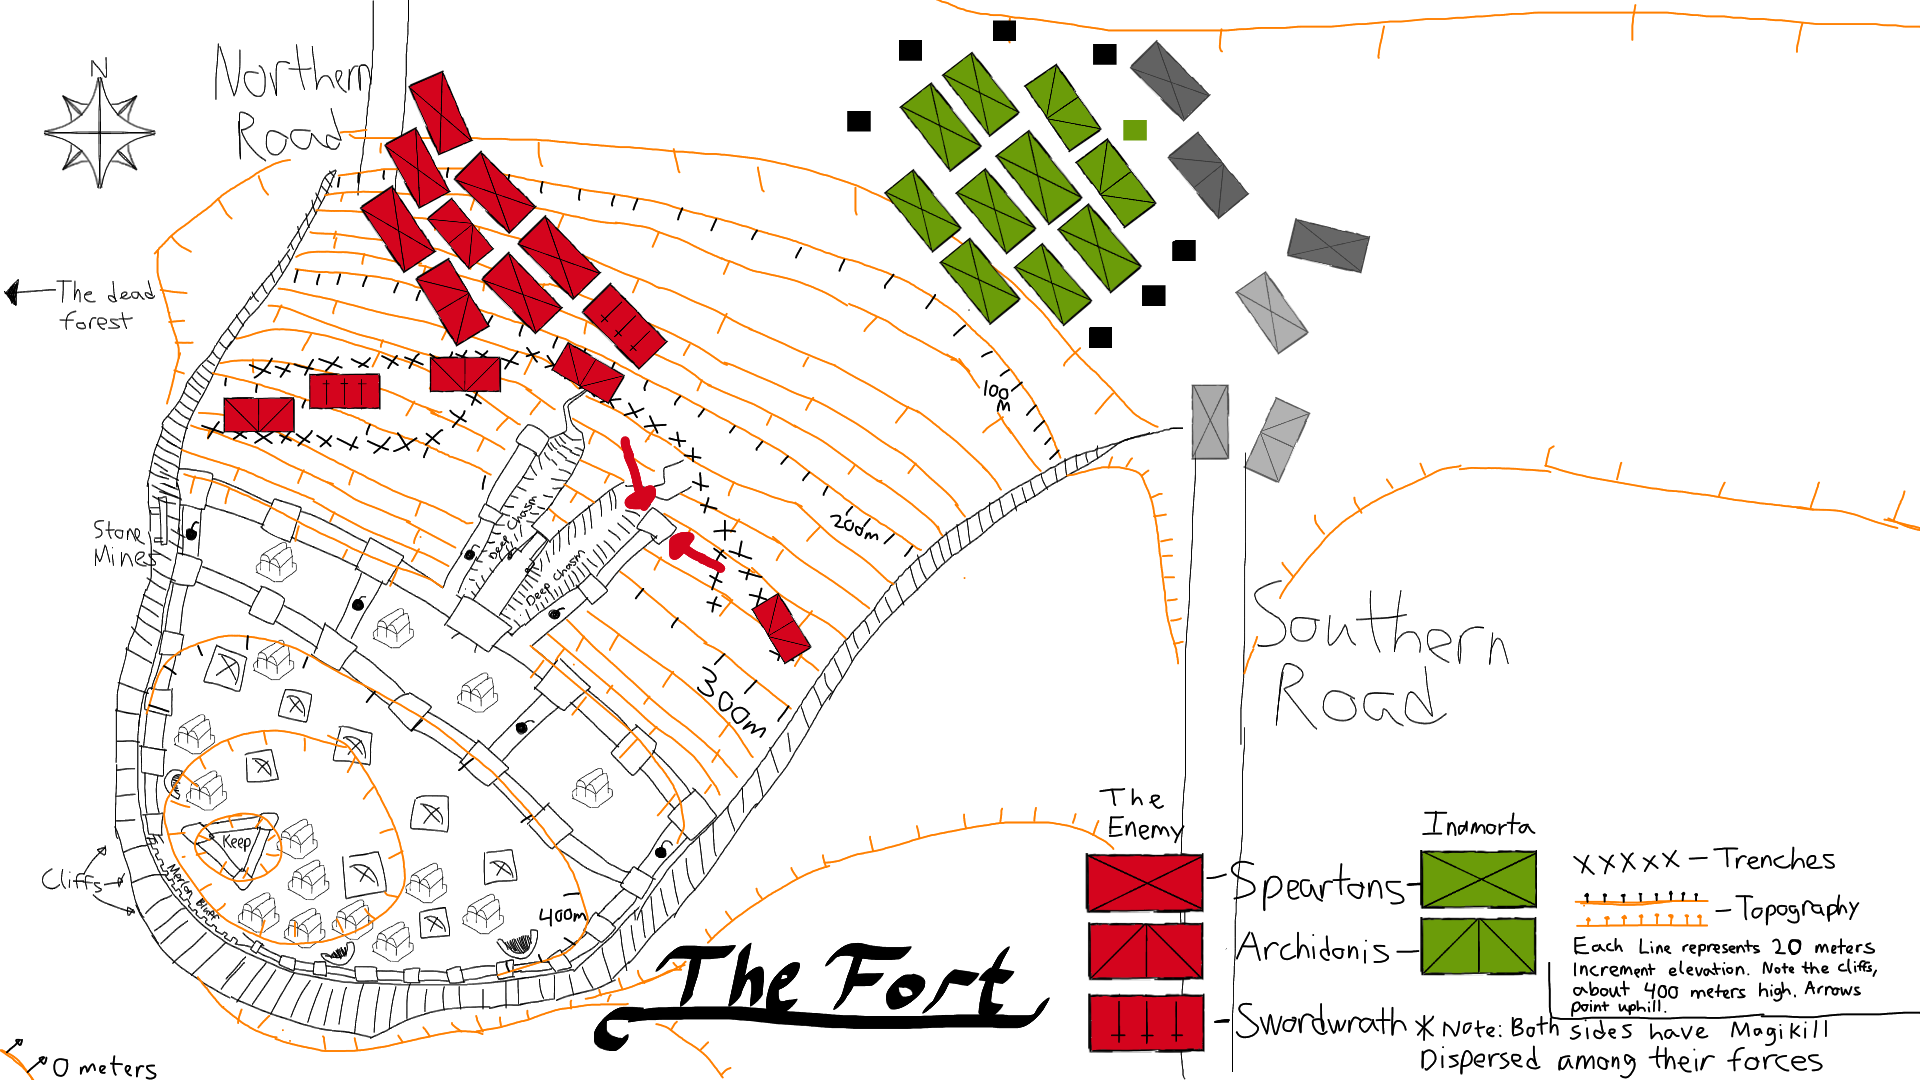 N
Northern
Road
The dead
forest
100
m
200m
300m
400m
Stone
Mines
Deep Chasm
Deep Chasm
Keep
Merlon Bluff
Cliffs
0 meters
The Fort
Southern
Road
The
Enemy
Inamorta
Speartons
Archidonis
Swordwrath
XXXXX - Trenches
- Topography
Each Line represents 20 meters
Increment elevation. Note the cliffs,
about 400 meters high. Arrows
point uphill.
* Note: Both sides have Magikill
Dispersed among their forces